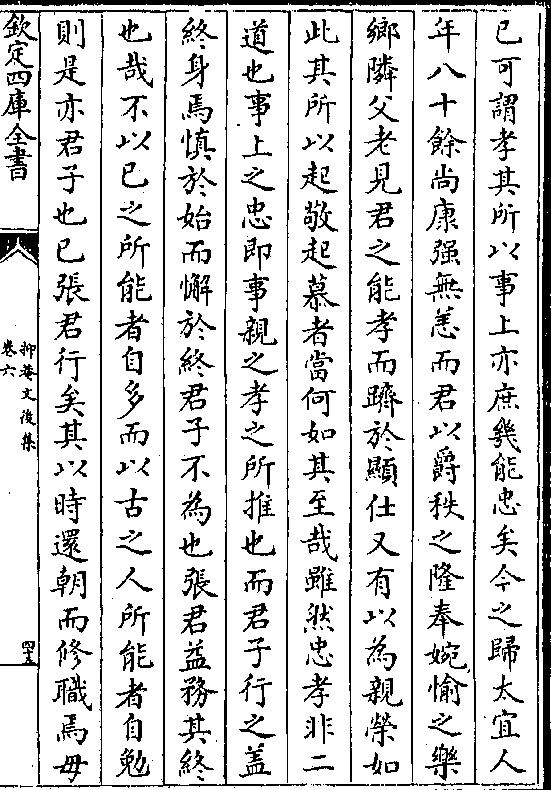 已可謂孝其所以事上亦庶幾能忠矣今之歸太宜人
年八十餘尚康强無恙而君以爵秩之隆奉婉愉之樂
鄉隣父老見君之能孝而躋於顯仕又有以為親榮如
此其所以起敬起慕者當何如其至哉雖然忠孝非二
道也事上之忠即事親之孝之所推也而君子行之盖
終身焉慎於始而懈於終君子不為也張君益務其終
也哉不以已之所能者自多而以古之人所能者自勉
則是亦君子也已張君行矣其以時還朝而修職焉毋
欽定四庫全書
抑菴文後集
卷六
四五